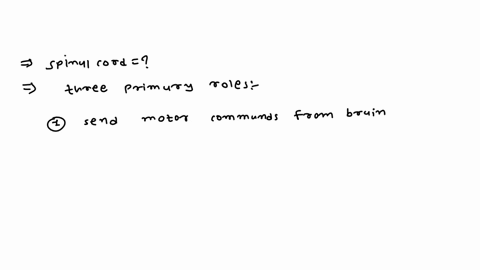 ⇒ spinul cord = ?
⇒ three primury roles:-
① send motor communds from bruin